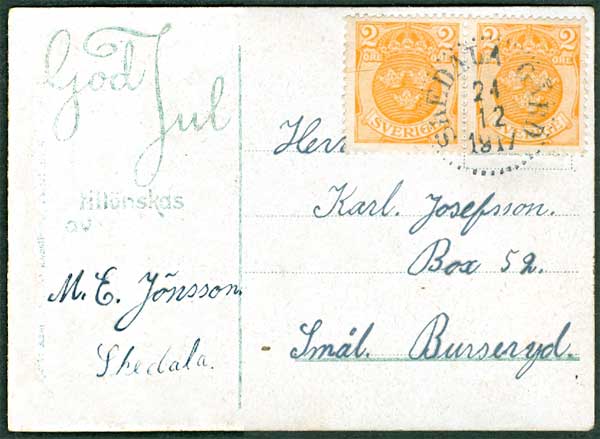 God
Jul
tillönskas
av
M. E. Jönsson.
Skedala.
2 2
ÖRE ÖRE
SVERIGE
SKEDALA
24
12
1917
Herr
Karl. Josefsson.
Box 52.
Smål. Burseryd.